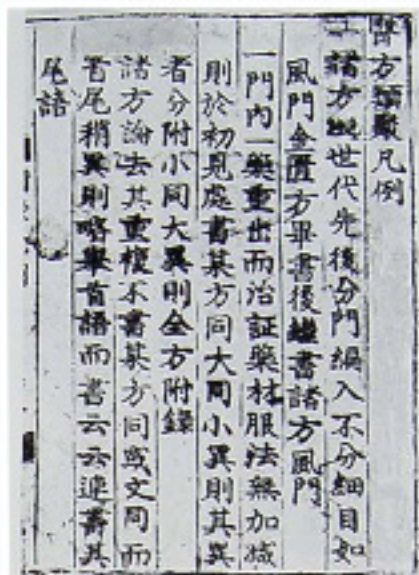 醫方類聚凡例
一諸方以世代先後分門編入不分細目如
風門金匱方畢書後繼書諸方風門
一門內一藥重出而治証藥材服法無加減
則於初見處書某方同大同小異則其異
者分附小同大異則全方附錄
諸方論去其重複不書某方同或文同而
首尾稍異則略舉首語而書云云連書其
尾語